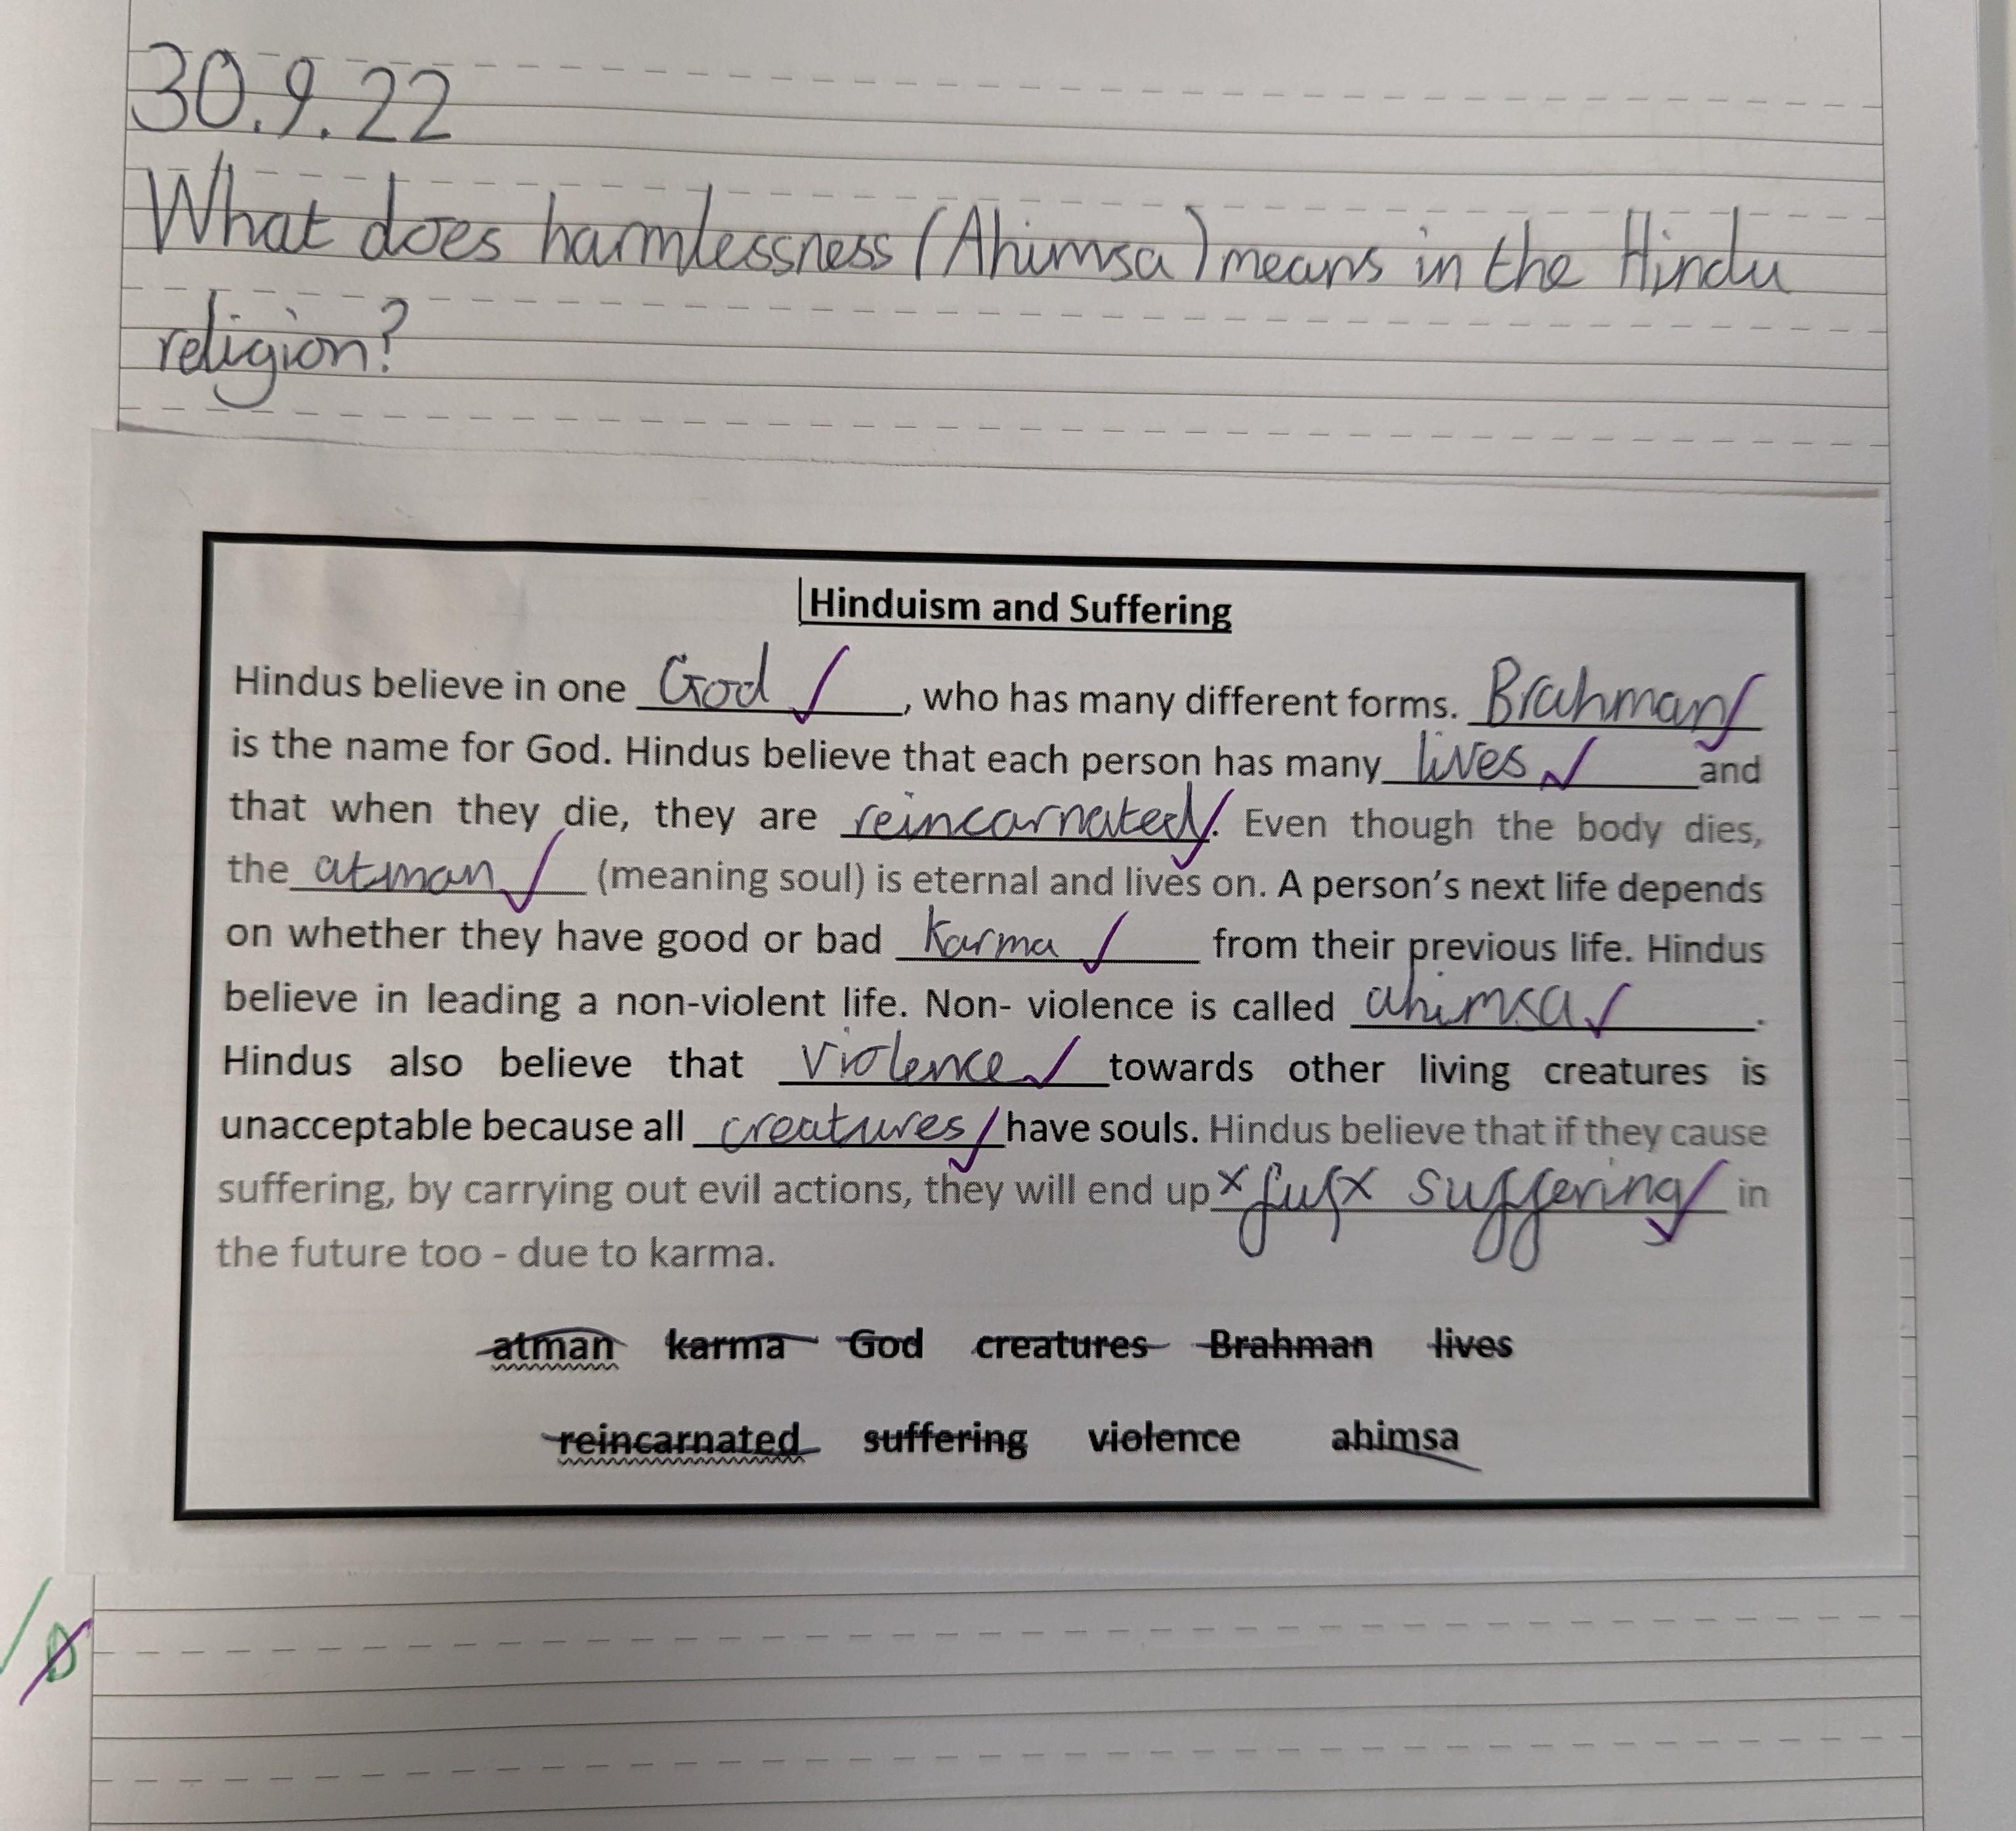 30.9.22
What does harmlessness (Ahimsa) means in the Hindu
religion?
Hinduism and Suffering
Hindus believe in one God, who has many different forms. Brahman
is the name for God. Hindus believe that each person has many lives and
that when they die, they are reincarnated. Even though the body dies,
the atman (meaning soul) is eternal and lives on. A person's next life depends
on whether they have good or bad Karma from their previous life. Hindus
believe in leading a non-violent life. Non- violence is called ahimsa.
Hindus also believe that violence towards other living creatures is
unacceptable because all creatures have souls. Hindus believe that if they cause
suffering, by carrying out evil actions, they will end up suffering in
the future too - due to karma.
atman karma God creatures Brahman lives
reincarnated suffering violence ahimsa